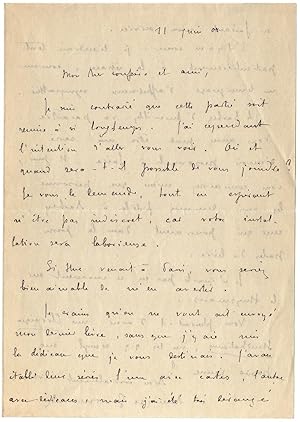 11 juin
Mon cher confrère et ami,
Je suis contrarié que cette partie soit
remise à si longtemps. J'ai cependant
l'intention d'aller vous voir. Où et
quand sera-t-il possible de vous joindre ?
Je vous le demande, tout en espérant
n'être pas indiscret, car votre instal-
lation sera laborieuse.
Si, venait à Paris, vous seriez
bien aimable de m'en avertir.
Je crains qu'on ne vous ait envoyé
mon dernier livre, sans que j'y aie mis
la dédicace que je vous destinais. J'avais
établi deux séries, l'une avec cartes, l'autre
avec dédicaces, mais j'ai été